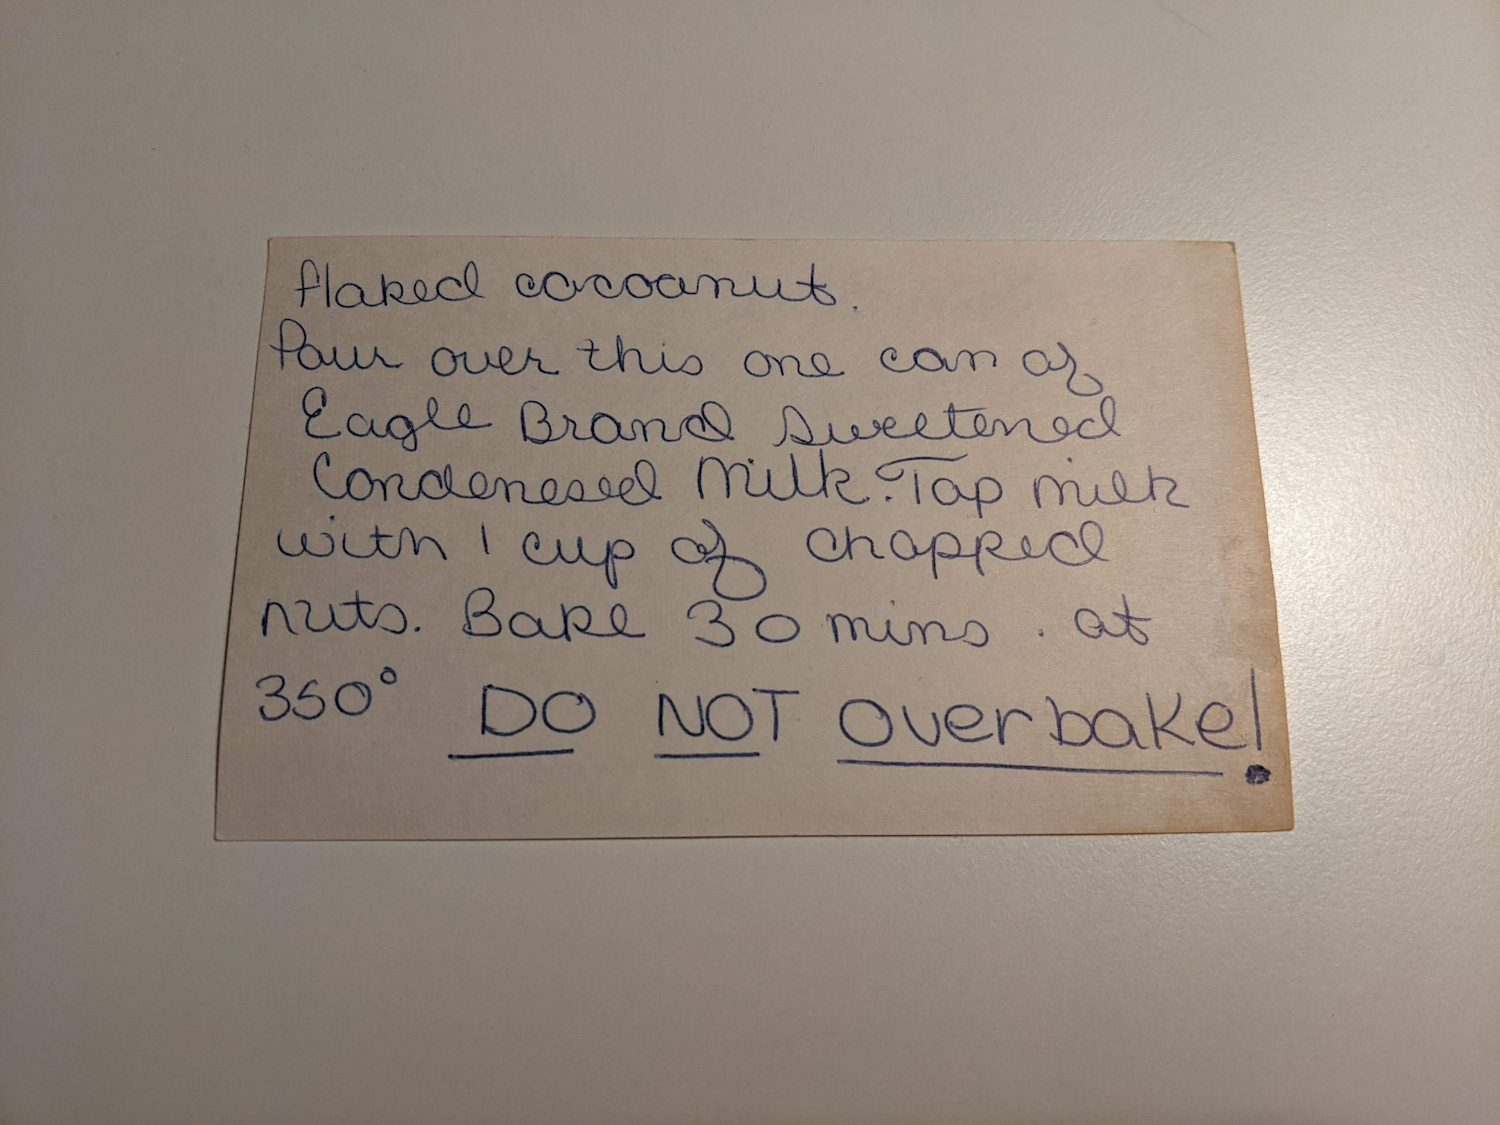 flaked cocoanut.
Pour over this one can of
Eagle Brand Sweetened
Condenesed Milk. Top milk
with 1 cup of chopped
nuts. Bake 30 mins. at
350° DO NOT Overbake!